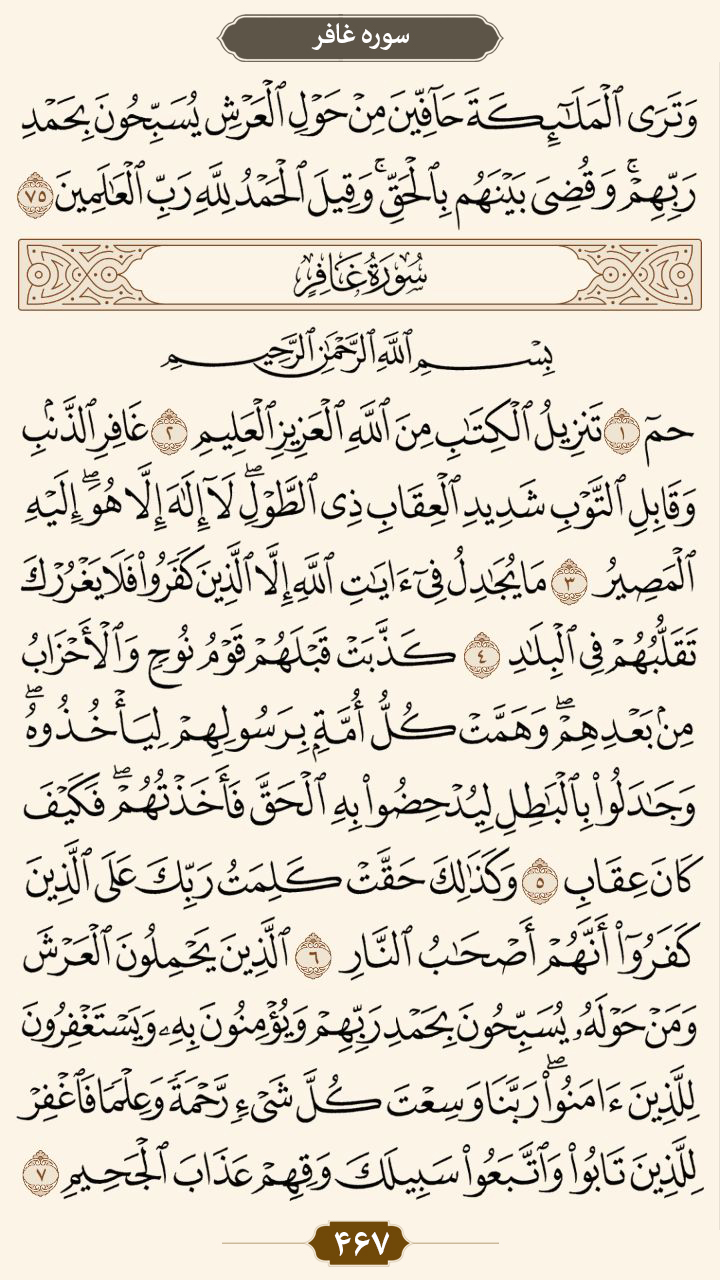 سوره غافر
وَتَرَى ٱلْمَلَٰٓئِكَةَ حَآفِّينَ مِنْ حَوْلِ ٱلْعَرْشِ يُسَبِّحُونَ بِحَمْدِ
رَبِّهِمْۚ وَقُضِىَ بَيْنَهُم بِٱلْحَقِّۚ وَقِيلَ ٱلْحَمْدُ لِلَّهِ رَبِّ ٱلْعَٰلَمِينَ ٧٥
سُورَةُ غَافِرٍ
بِسْمِ ٱللَّهِ ٱلرَّحْمَٰنِ ٱلرَّحِيمِ
حمٓ ١ تَنزِيلُ ٱلْكِتَٰبِ مِنَ ٱللَّهِ ٱلْعَزِيزِ ٱلْعَلِيمِ ٢ غَافِرِ ٱلذَّنۢبِ
وَقَابِلِ ٱلتَّوْبِ شَدِيدِ ٱلْعِقَابِ ذِى ٱلطَّوْلِۖ لَآ إِلَٰهَ إِلَّا هُوَۖ إِلَيْهِ
ٱلْمَصِيرُ ٣ مَا يُجَٰدِلُ فِىٓ ءَايَٰتِ ٱللَّهِ إِلَّا ٱلَّذِينَ كَفَرُوا۟ فَلَا يَغْرُرْكَ
تَقَلُّبُهُمْ فِى ٱلْبِلَٰدِ ٤ كَذَّبَتْ قَبْلَهُمْ قَوْمُ نُوحٍ وَٱلْأَحْزَابُ
مِنۢ بَعْدِهِمْۖ وَهَمَّتْ كُلُّ أُمَّةٍۭ بِرَسُولِهِمْ لِيَأْخُذُوهُۖ
وَجَٰدَلُوا۟ بِٱلْبَٰطِلِ لِيُدْحِضُوا۟ بِهِ ٱلْحَقَّ فَأَخَذْتُهُمْۖ فَكَيْفَ
كَانَ عِقَابِ ٥ وَكَذَٰلِكَ حَقَّتْ كَلِمَتُ رَبِّكَ عَلَى ٱلَّذِينَ
كَفَرُوٓا۟ أَنَّهُمْ أَصْحَٰبُ ٱلنَّارِ ٦ ٱلَّذِينَ يَحْمِلُونَ ٱلْعَرْشَ
وَمَنْ حَوْلَهُۥ يُسَبِّحُونَ بِحَمْدِ رَبِّهِمْ وَيُؤْمِنُونَ بِهِۦ وَيَسْتَغْفِرُونَ
لِلَّذِينَ ءَامَنُوا۟ۖ رَبَّنَا وَسِعْتَ كُلَّ شَىْءٍ رَّحْمَةً وَعِلْمًا فَٱغْفِرْ
لِلَّذِينَ تَابُوا۟ وَٱتَّبَعُوا۟ سَبِيلَكَ وَقِهِمْ عَذَابَ ٱلْجَحِيمِ ٧
۴۶۷